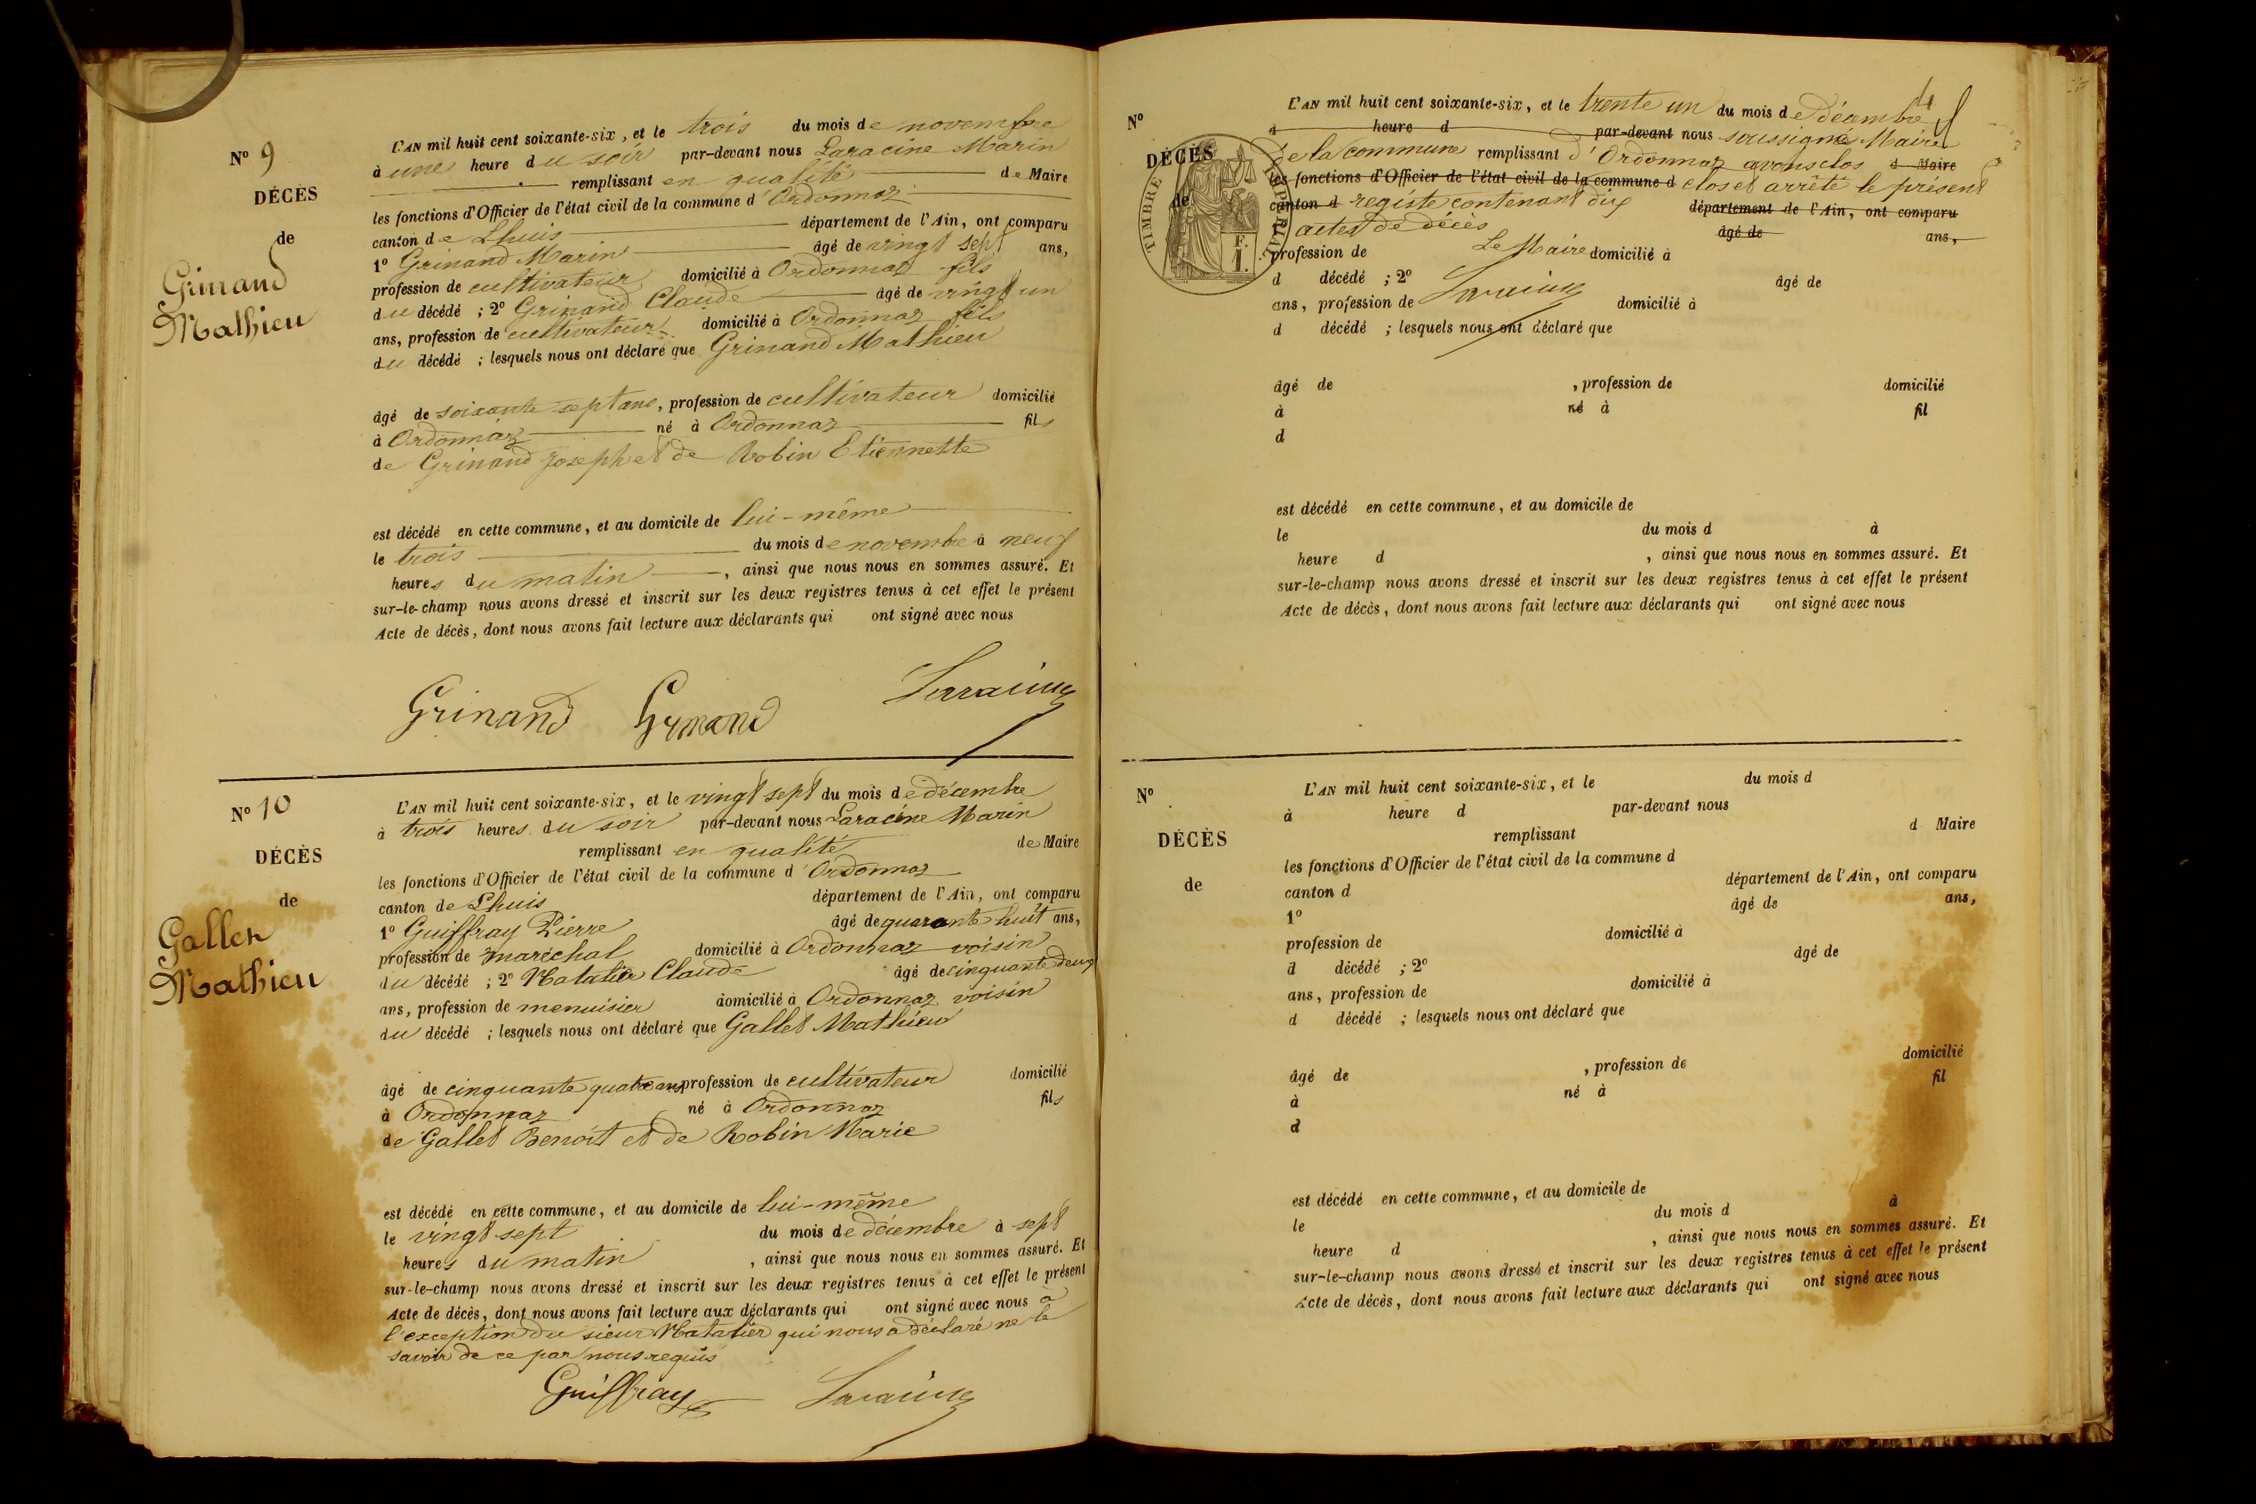 N° 9
DÉCÈS
de
Grinand
Mathieu
L'AN mil huit cent soixante-six, et le trois du mois de novembre
à une heure du soir par-devant nous Laracine Marin
remplissant en qualité de Maire
les fonctions d'Officier de l'état civil de la commune d'Ordonnaz
canton de Lhuis département de l'Ain, ont comparu
1° Grinand Marin âgé de vingt sept ans,
profession de cultivateur domicilié à Ordonnaz fils
du décédé ; 2° Grinand Claude âgé de vingt un
ans, profession de cultivateur domicilié à Ordonnaz fils
du décédé ; lesquels nous ont déclaré que Grinand Mathieu
âgé de soixante sept ans, profession de cultivateur domicilié
à Ordonnaz né à Ordonnaz fils
de Grinand Joseph et de Robin Etiennette
est décédé en cette commune, et au domicile de lui-même
le trois du mois de novembre à neuf
heures du matin, ainsi que nous nous en sommes assuré. Et
sur-le-champ nous avons dressé et inscrit sur les deux registres tenus à cet effet le présent
Acte de décès, dont nous avons fait lecture aux déclarants qui ont signé avec nous
Grinand Grinand Laracine
N° 10
DÉCÈS
de
Gallet
Mathieu
L'AN mil huit cent soixante-six, et le vingt sept du mois de décembre
à trois heures du soir par-devant nous Laracine Marin
remplissant en qualité de Maire
les fonctions d'Officier de l'état civil de la commune d'Ordonnaz
canton de Lhuis département de l'Ain, ont comparu
1° Guiffray Pierre âgé de quarante huit ans,
profession de maréchal domicilié à Ordonnaz voisin
du décédé ; 2° Matalier Claude âgé de cinquante deux
ans, profession de menuisier domicilié à Ordonnaz voisin
du décédé ; lesquels nous ont déclaré que Gallet Mathieu
âgé de cinquante quatre ans profession de cultivateur domicilié
à Ordonnaz né à Ordonnaz fils
de Gallet Benoît et de Robin Marie
est décédé en cette commune, et au domicile de lui-même
le vingt sept du mois de décembre à sept
heures du matin, ainsi que nous nous en sommes assuré. Et
sur-le-champ nous avons dressé et inscrit sur les deux registres tenus à cet effet le présent
Acte de décès, dont nous avons fait lecture aux déclarants qui ont signé avec nous a
l'exception du sieur Matalier qui nous a déclaré ne le
savoir de ce par nous requis
Guiffray Laracine
N°
DÉCÈS
de
TIMBRE IMPÉRIAL
F.
1.
L'AN mil huit cent soixante-six, et le trente un du mois de décembre
d heure d par-devant nous soussigné Maire
de la commune remplissant d'Ordonnaz avons clos d Maire
les fonctions d'Officier de l'état civil de la commune d clos et arrêté le présent
canton d registe contenant dix département de l'Ain, ont comparu
1° actes de décès âgé de ans,
profession de Le Maire domicilié à
d décédé ; 2° Laracine âgé de
ans, profession de domicilié à
d décédé ; lesquels nous ont déclaré que
âgé de , profession de domicilié
à né à fil
d
est décédé en cette commune, et au domicile de
le du mois d à
heure d , ainsi que nous nous en sommes assuré. Et
sur-le-champ nous avons dressé et inscrit sur les deux registres tenus à cet effet le présent
Acte de décès, dont nous avons fait lecture aux déclarants qui ont signé avec nous
N°
DÉCÈS
de
L'AN mil huit cent soixante-six, et le du mois d
à heure d par-devant nous
remplissant d Maire
les fonctions d'Officier de l'état civil de la commune d
canton d département de l'Ain, ont comparu
1° âgé de ans,
profession de domicilié à
d décédé ; 2° âgé de
ans, profession de domicilié à
d décédé ; lesquels nous ont déclaré que
âgé de , profession de domicilié
à né à fil
d
est décédé en cette commune, et au domicile de
le du mois d à
heure d , ainsi que nous nous en sommes assuré. Et
sur-le-champ nous avons dressé et inscrit sur les deux registres tenus à cet effet le présent
Acte de décès, dont nous avons fait lecture aux déclarants qui ont signé avec nous